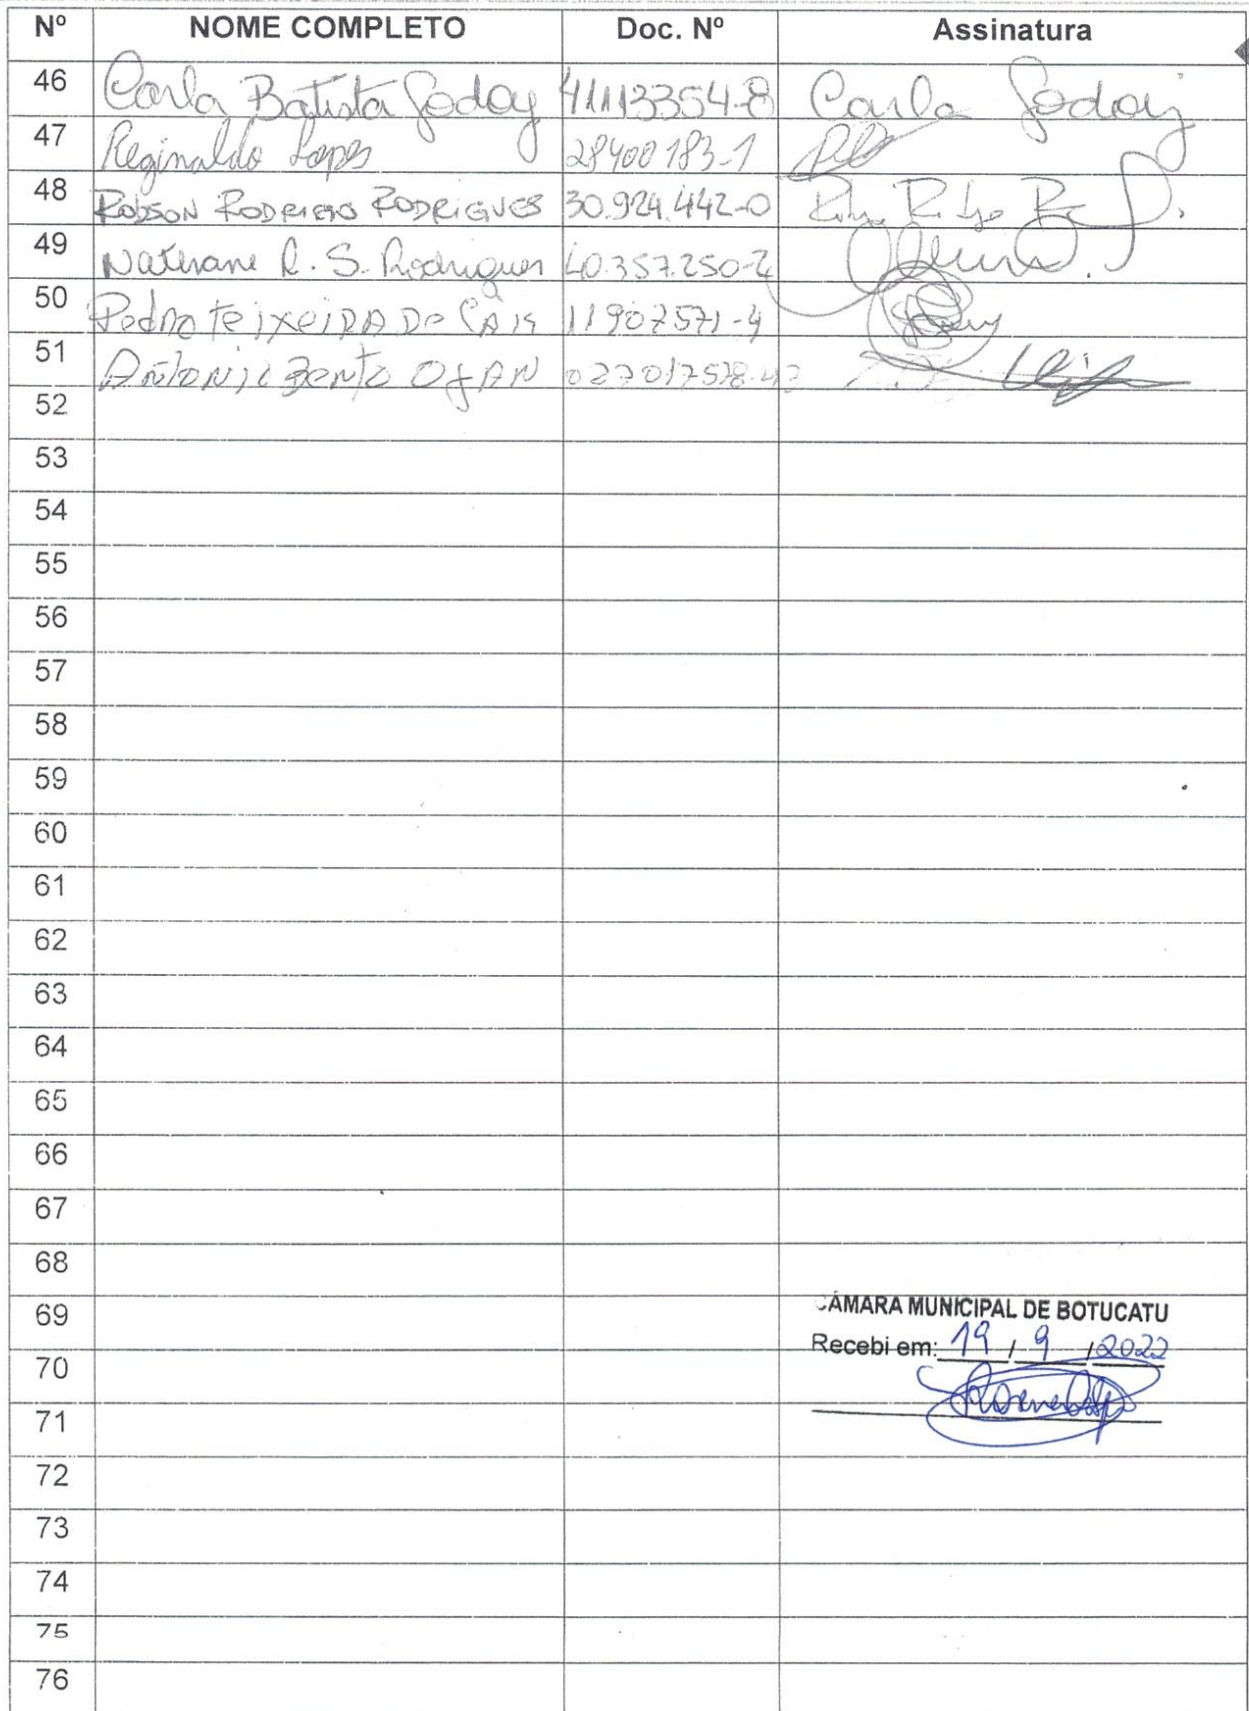 Nº NOME COMPLETO Doc. Nº Assinatura
46 Carla Batista Godoy 41113354-8 Carla Godoy
47 Reginaldo Lopes 28400183-1
48 Robson Rodrigo Rodrigues 30.924.442-0
49 R. S. Rodrigues 40.357.250-2
50 Pedro teixeira De 11907571-4
51 Bento 027017578-
52
53
54
55
56
57
58
59
60
61
62
63
64
65
66
67
68
69 CÂMARA MUNICIPAL DE BOTUCATU
Recebi em: 19 / 9 / 2022
70
71
72
73
74
75
76